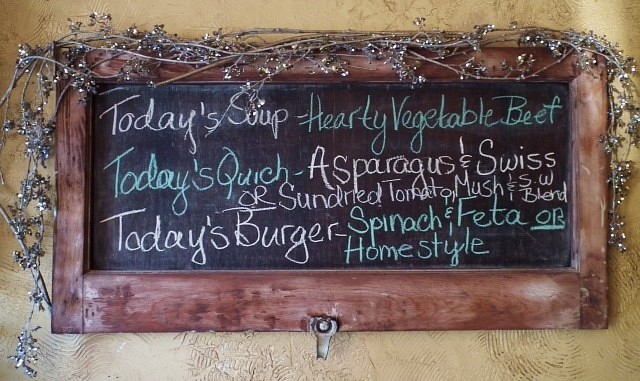 Today's Soup - Hearty Vegetable Beef
Today's Quich - Asparagus & Swiss
OR Sundried Tomato, Mush & S.W Blend
Today's Burger - Spinach & Feta OR
Homestyle